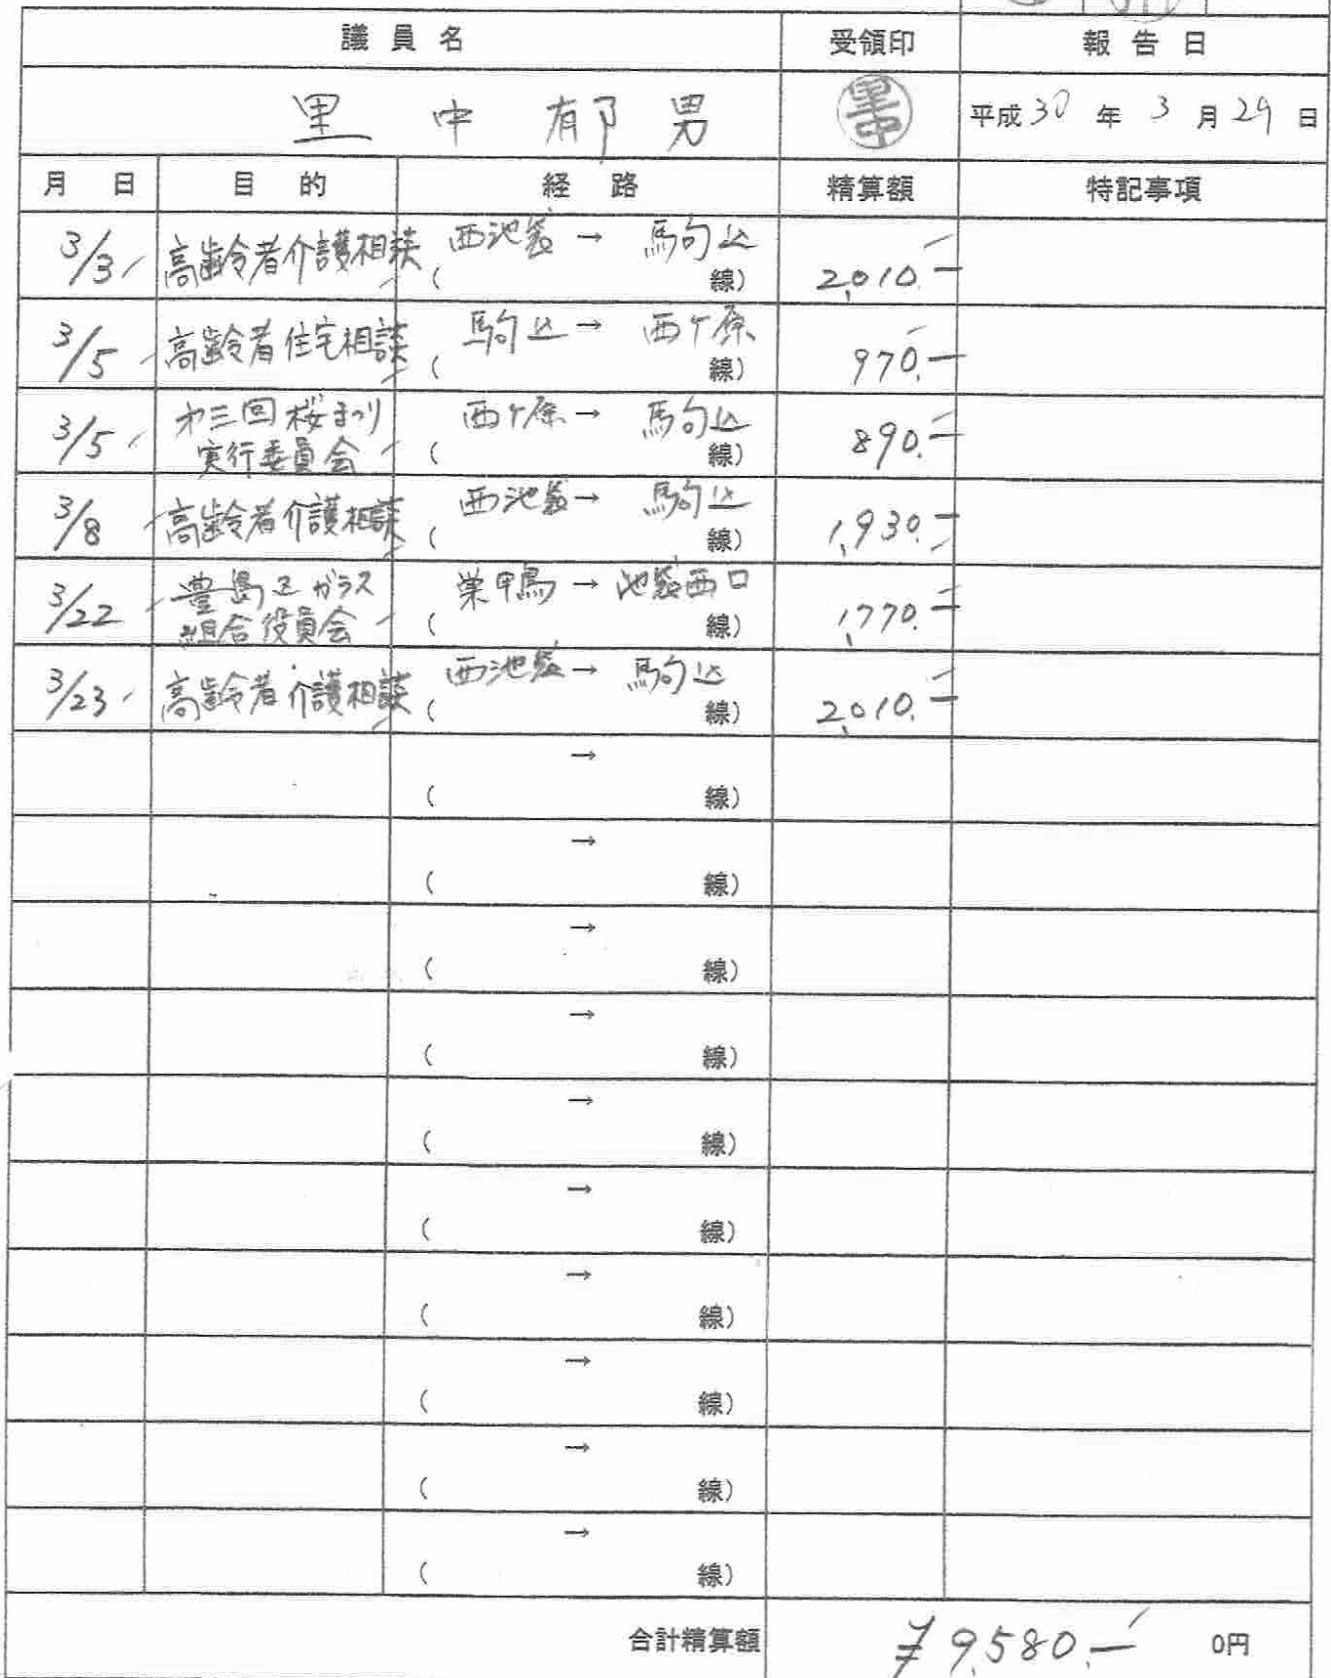 議員名 受領印 報告日
里中郁男 里中 平成30年3月29日
月日 目的 経路 精算額 特記事項
3/3 高齢者介護相談 西池袋 → 駒込 2,010.-
( 線)
3/5 高齢者住宅相談 駒込 → 西ケ原 970.-
( 線)
3/5 才三回桜まつり 西ケ原 → 駒込 890.-
実行委員会 ( 線)
3/8 高齢者介護相談 西池袋 → 駒込 1,930.-
( 線)
3/22 豊島区ガラス 巣鴨 → 池袋西口 1,770.-
組合役員会 ( 線)
3/23 高齢者介護相談 西池袋 → 駒込 2,010.-
( 線)
→
( 線)
→
( 線)
→
( 線)
→
( 線)
→
( 線)
→
( 線)
→
( 線)
→
( 線)
→
( 線)
→
( 線)
合計精算額 ¥9,580.- 0円